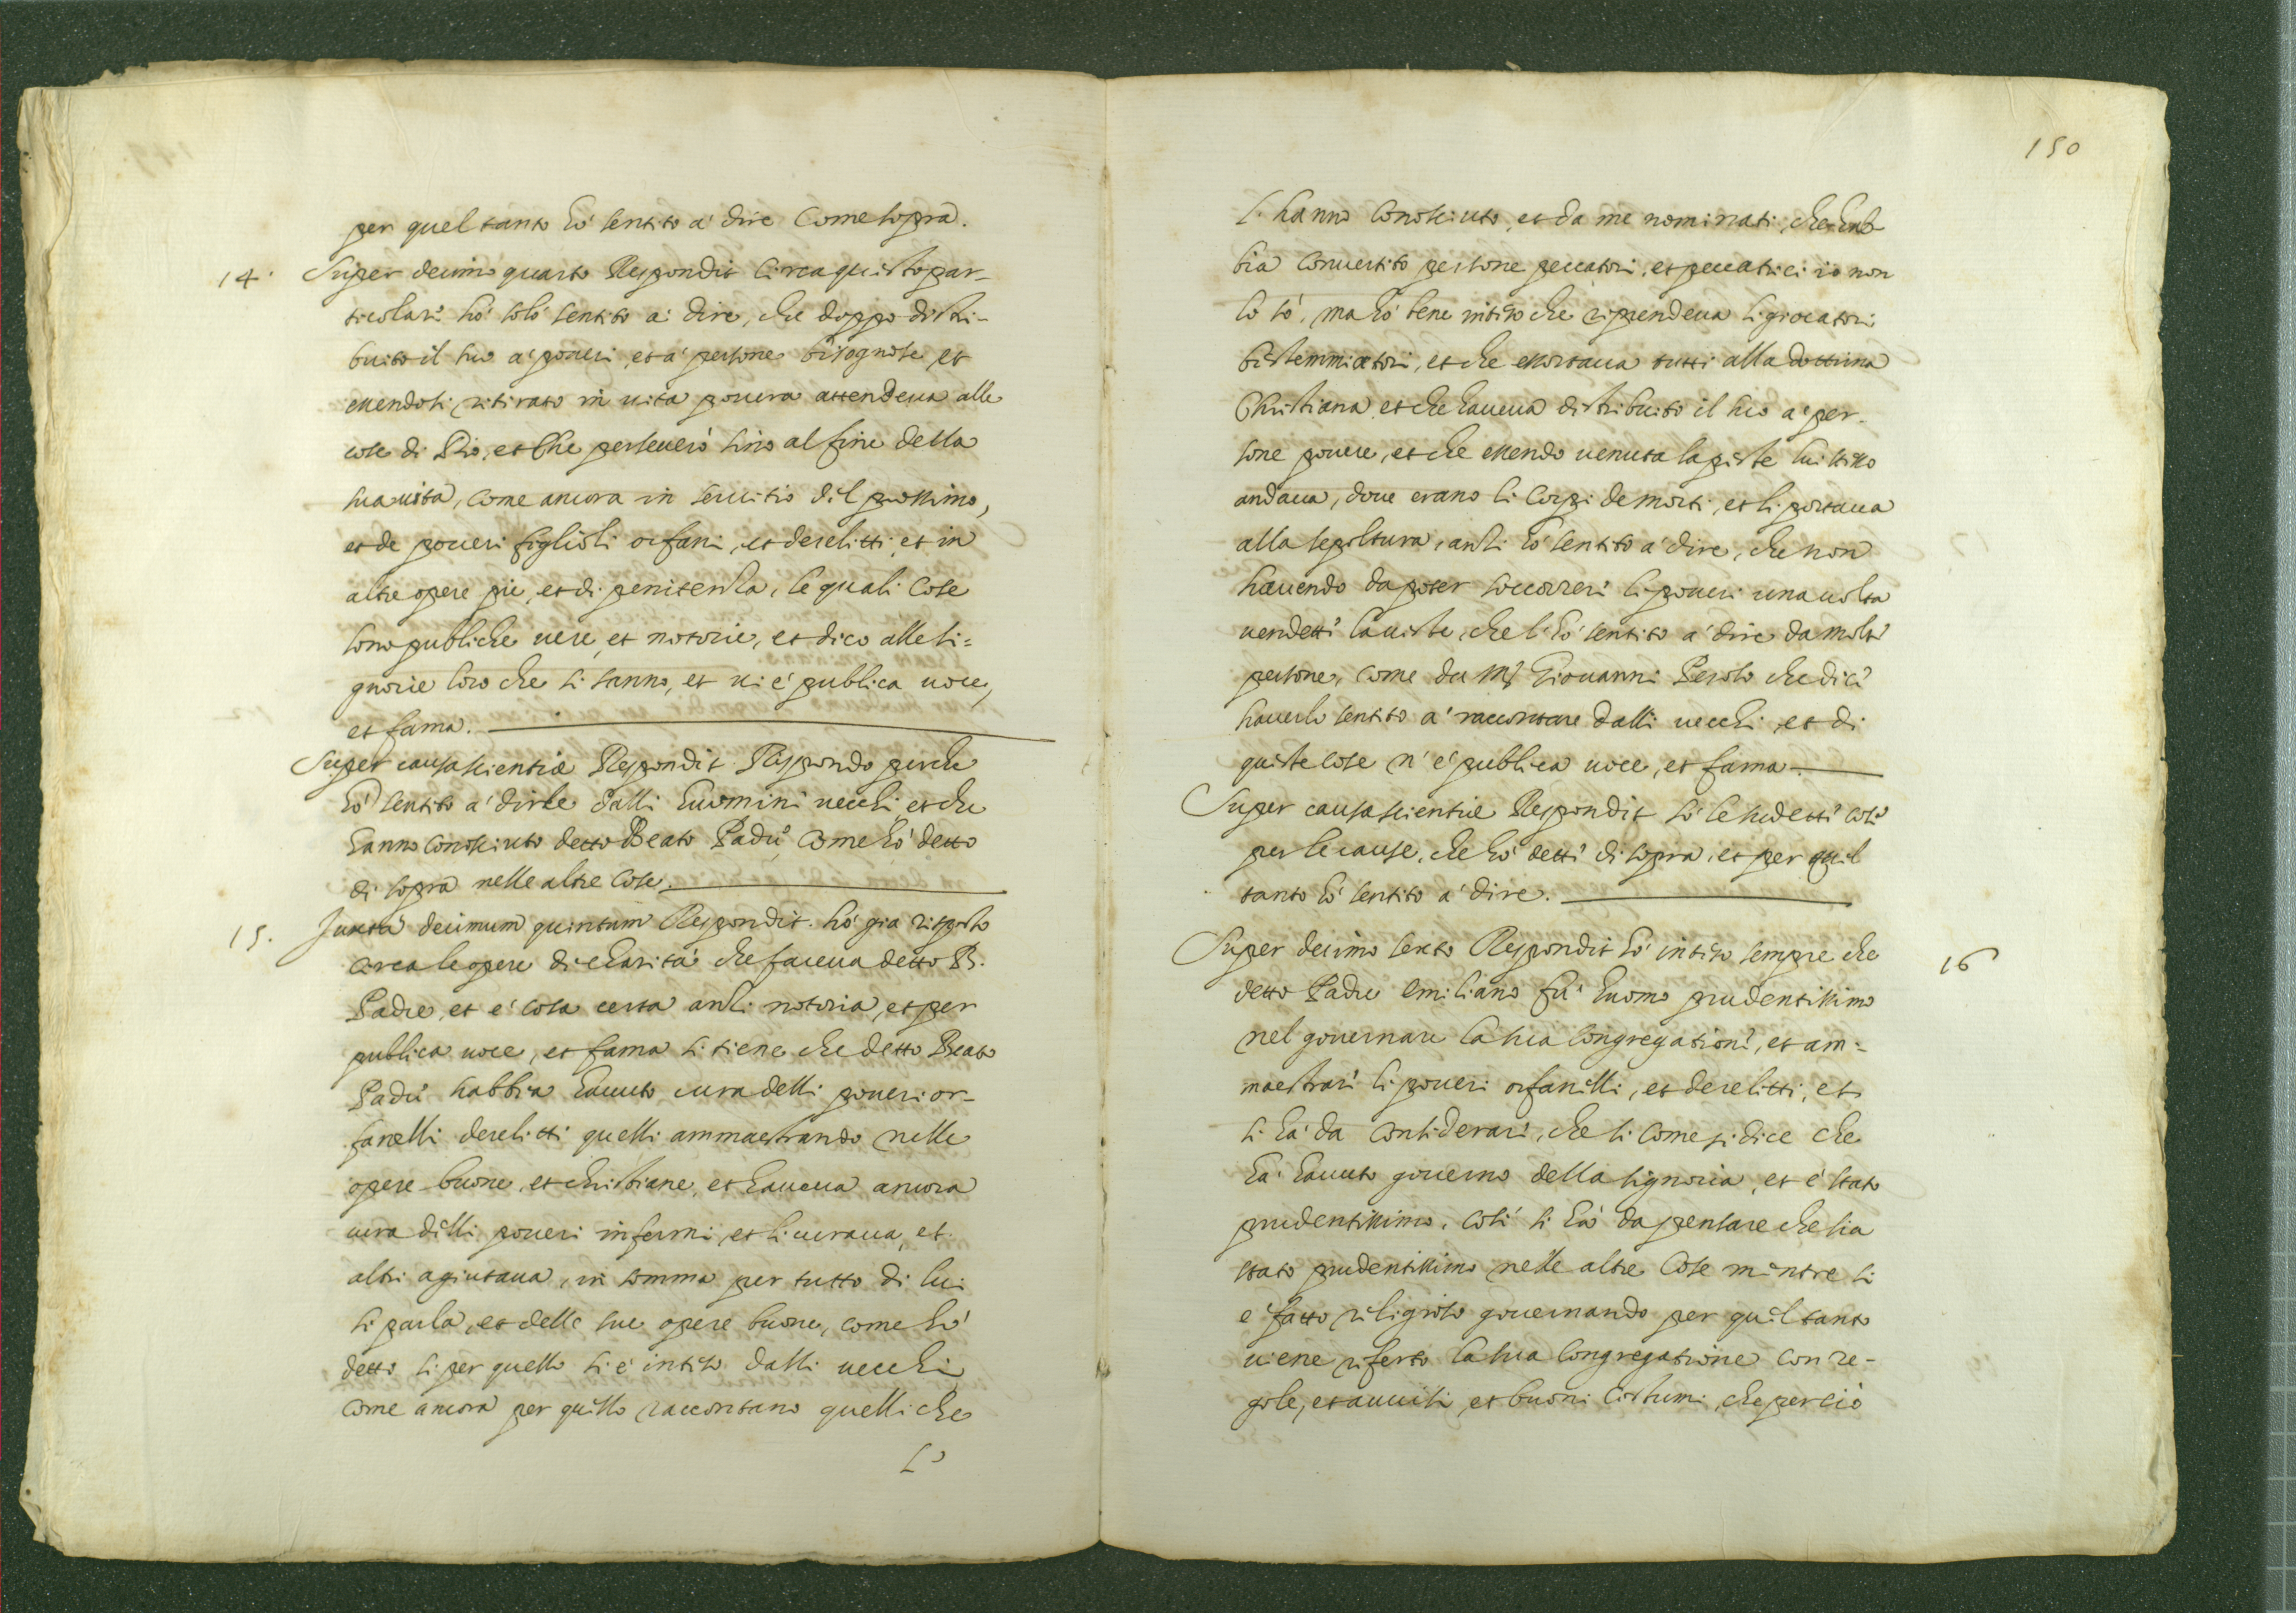 per quel tanto hó sentito á dire come sopra.
14. Super decimo quarto Respondit circa questo par-
ticolare hó solo sentito á dire, che doppo distri-
buito il suo á poveri, et á persone bisognose, et
essendosi ritirato in vita povera attendeva alle
cose di Dio, et che perseverò sino al fine della
sua vita, come ancora in servitio del prossimo,
et de poveri figlioli orfani, et derelitti, et in
altre opere pie, et di penitenza, le quali cose
sono publiche vere, et notorie, et dico alle Si=
gnorie loro che si sanno, et vi é publica voce,
et fama.
Super causa scientiæ Respondit. Rispondo perche
hó sentito á dirle dalli huomini vecchi, et che
hanno conosciuto detto Beato Padre come hó detto
di sopra nelle altre cose.
15. Juxta decimum quintum Respondit. hó gia risposto
circa le opere di charitá che faceva detto B.
Padre, et é cosa certa anzi notoria, et per
publica voce, et fama si tiene che detto Beato
Padre habbia havuto cura delli poveri or-
fanelli derelitti quelli ammaestrando nelle
opere buone, et christiane, et haveva ancora
cura delli poveri infermi, et li curava, et
altri agiutava, in somma per tutto di lui
si parla, et delle sue opere buone, come hó
detto si per quello si é inteso dalli vecchi
come ancora per quello raccontano quelli che
L'
150
l' hanno conosciuto, et da me nominati, che hab
bia convertito persone peccatori, et peccatrici io non
lo só, ma hó bene inteso che riprendeva li giocatori
bistemmiatori, et che essortava tutti alla dottrina
Christiana, et che haveva distribuito il suo á per-
sone povere, et che essendo venuta la peste lui stesso
andava, dove erano li corpi de morti, et li portava
alla sepoltura, anzi hó sentito á dire, che non
havendo da poter soccorrere li poveri una volta
vendette la veste, che l' hó sentito á dire da molte
persone, come da Mr Giovanni Perolo che dice
haverlo sentito á raccontare dalli vecchi, et di
queste cose n' é publica voce, et fama.
Super causa scientiæ Respondit só le sudette cose
per le cause, che hó dette di sopra, et per quel
tanto hó sentito á dire.
Super decimo sexto Respondit hó inteso sempre che 16
detto Padre Emiliano fú huomo prudentissimo
nel governare la sua Congregatione, et am=
maestrare li poveri orfanelli, et derelitti, et
si há da considerare, che si come si dice che
há havuto governo della Signoria, et é stato
prudentissimo, cosí si há da pensare che sia
stato prudentissimo nelle altre cose mentre si
é fatto religioso governando per quel tanto
viene riferto la sua Congregatione con re-
gole, et avvisi, et buoni costumi, che perció